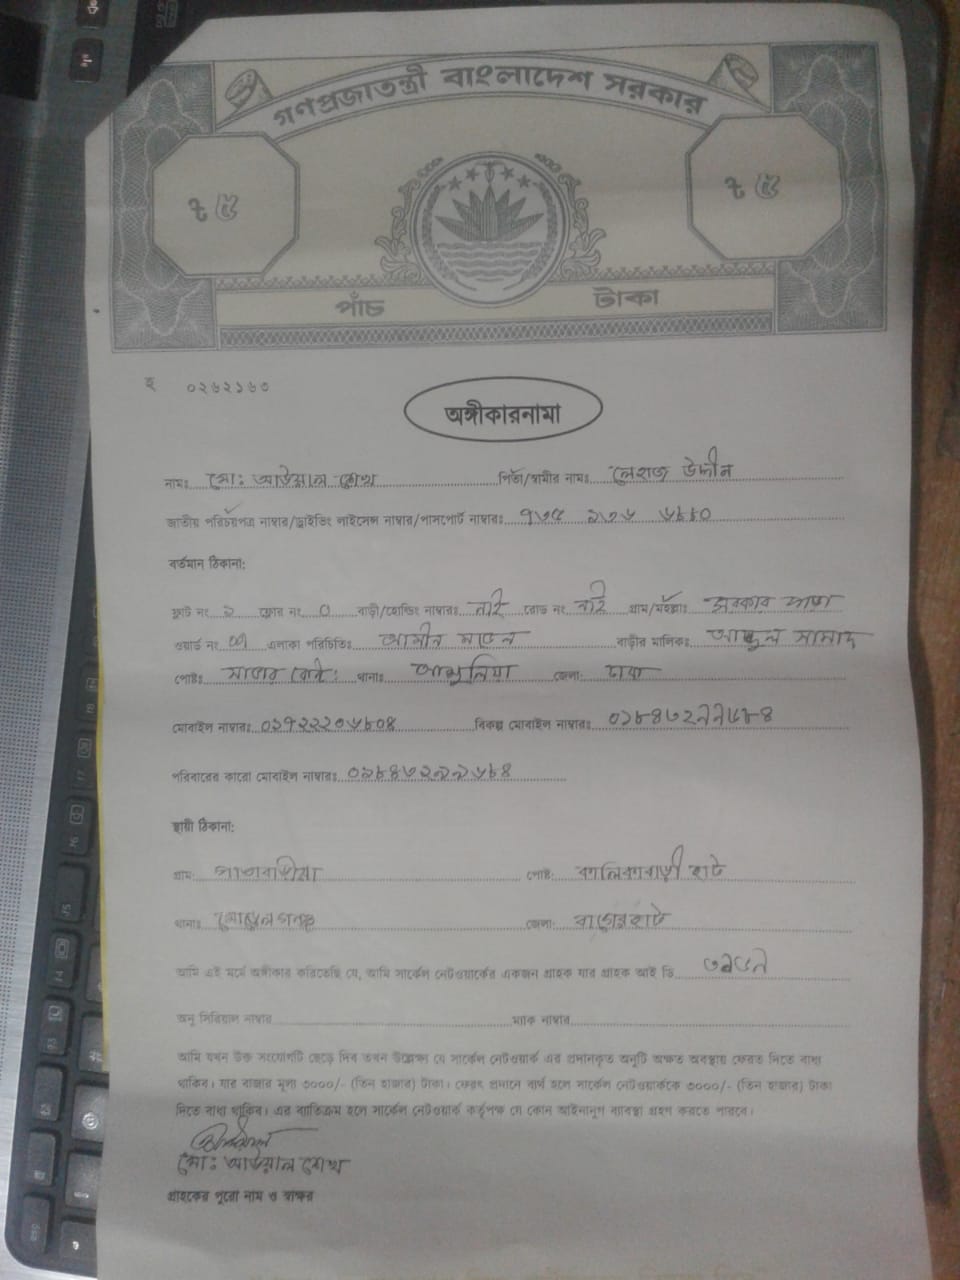 গণপ্রজাতন্ত্রী বাংলাদেশ সরকার
৳ ৫ ৳ ৫
পাঁচ টাকা
হ ০২৬২১৬৩
অঙ্গীকারনামা
নামঃ মো: আউয়াল শেখ পিতা/স্বামীর নামঃ লেহাজ উদ্দীন
জাতীয় পরিচয়পত্র নাম্বার/ড্রাইভিং লাইসেন্স নাম্বার/পাসপোর্ট নাম্বারঃ ৭৩৫ ২৩৬ ৬৪৪০
বর্তমান ঠিকানা:
ফ্লাট নং ২ ফ্লোর নং ০ বাড়ী/হোল্ডিং নাম্বারঃ নাই রোড নং নাই গ্রাম/মহল্লাঃ সরকার পাড়া
ওয়ার্ড নং এলাকা পরিচিতিঃ আমীন মডেল বাড়ীর মালিকঃ আব্দুল সামাদ
পোষ্টঃ সাভার থানাঃ আশুলিয়া জেলা: ঢাকা
মোবাইল নাম্বারঃ ০১৭২২২০৬৮০৪ বিকল্প মোবাইল নাম্বারঃ
পরিবারের কারো মোবাইল নাম্বারঃ
স্থায়ী ঠিকানা:
গ্রাম: পাতাবাড়ীয়া পোষ্ট: কালিকাবাড়ী হাট
থানাঃ মোড়েলগঞ্জ জেলা: বাগেরহাট
আমি এই মর্মে অঙ্গীকার করিতেছি যে, আমি সার্কেল নেটওয়ার্কের একজন গ্রাহক যার গ্রাহক আই ডি
অনু সিরিয়াল নাম্বার ম্যাক নাম্বার
আমি যখন উক্ত সংযোগটি ছেড়ে দিব তখন উল্লেক্ষ্য যে সার্কেল নেটওয়ার্ক এর প্রদানকৃত অনুটি অক্ষত অবস্থায় ফেরত দিতে বাধ্য
থাকিব। যার বাজার মূল্য ৩০০০/- (তিন হাজার) টাকা। ফেরৎ প্রদানে ব্যর্থ হলে সার্কেল নেটওয়ার্ককে ৩০০০/- (তিন হাজার) টাকা
দিতে বাধ্য থাকিব। এর ব্যতিক্রম হলে সার্কেল নেটওয়ার্ক কর্তৃপক্ষ যে কোন আইনানুগ ব্যাবস্থা গ্রহণ করতে পারবে।
মো: আউয়াল শেখ
গ্রাহকের পুরো নাম ও স্বাক্ষর